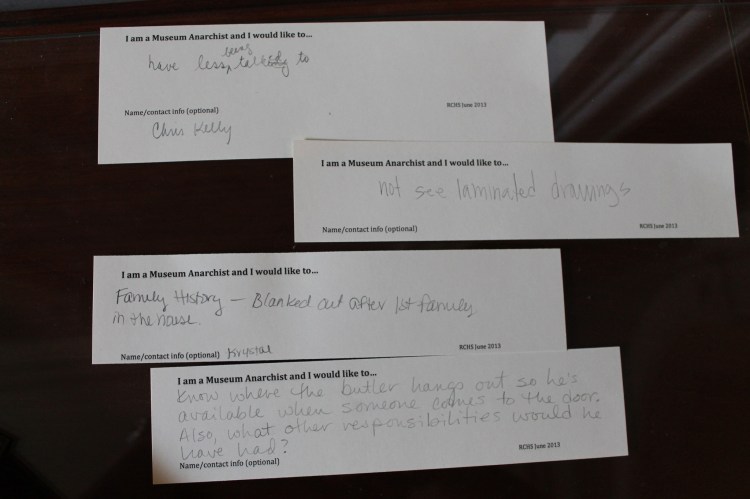 I am a Museum Anarchist and I would like to...
being
have less, talked to
Name/contact info (optional)
RCHS June 2013
Chris Kelly
I am a Museum Anarchist and I would like to...
not see laminated drawings
Name/contact info (optional)
RCHS June 2013
I am a Museum Anarchist and I would like to...
Family History — Blanked out after 1st family
in the house.
Name/contact info (optional) Krystal
RCHS June 2013
I am a Museum Anarchist and I would like to...
Know where the butler hangs out so he's
available when someone comes to the door.
Also, what other responsibilities would he
have had?
RCHS June 2013
Name/contact info (optional)